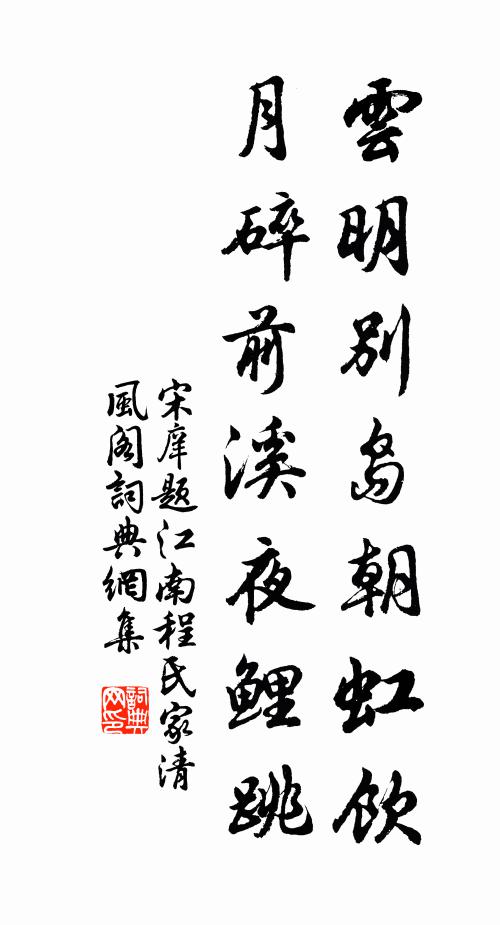 雲明別島朝虹飲
月碎前溪夜鯉跳
宋庠題江南程氏家清
風閣詞典網集
詞典网印